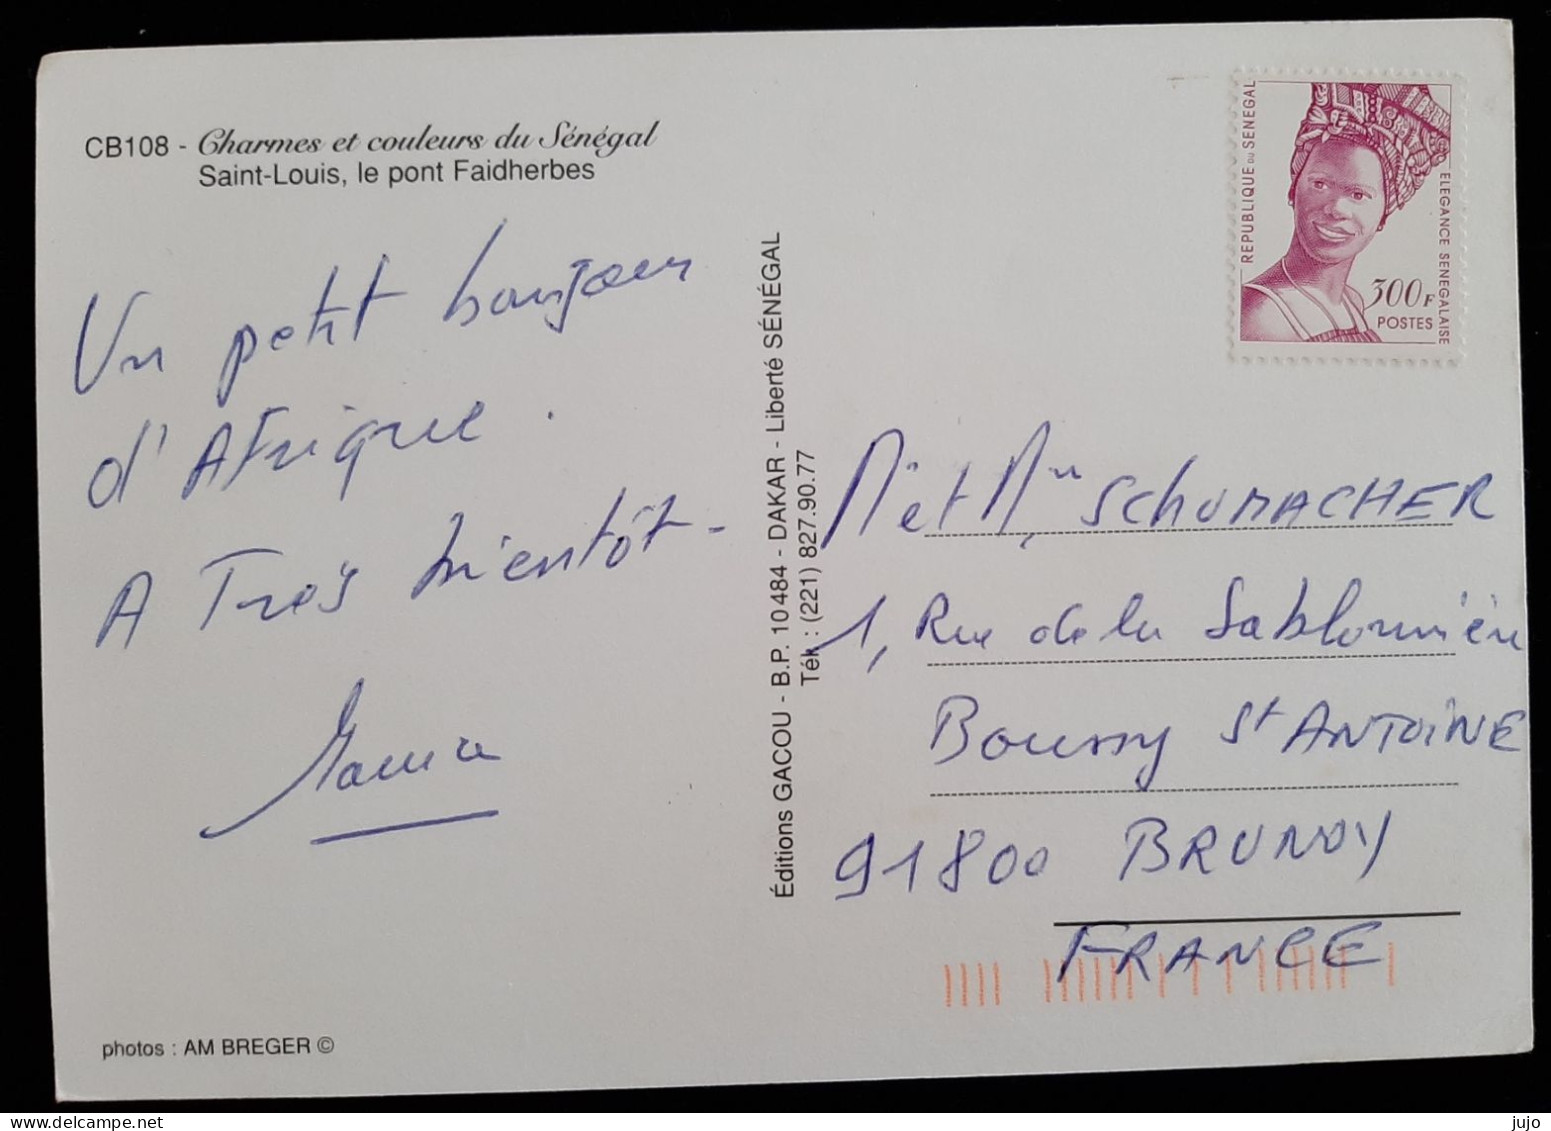 CB108 - Charmes et couleurs du Sénégal
Saint-Louis, le pont Faidherbes
Un petit bonjour
d'Afrique.
A Très bientôt -
photos : AM BREGER ©
Éditions GACOU - B.P. 10484 - DAKAR - Liberté SÉNÉGAL
Tél. : (221) 827.90.77
REPUBLIQUE DU SENEGAL
ELEGANCE SENEGALAISE
300F
POSTES
M et Me SCHUMACHER
1, Rue de la Sablonnière
Boussy St ANTOINE
91800 BRUNOY
FRANCE
jujo